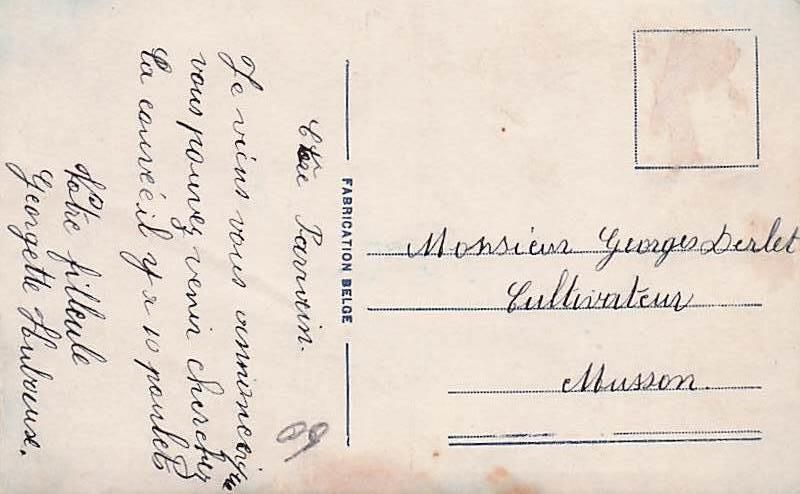 Cher Parrain.
Je viens vous annoncer que
vous pouvez venir chercher
la couvéeil y a 10 poulets
Votre filleule
Georgette Hubreux.
69
FABRICATION BELGE
Monsieur Georges Derlet
Cultivateur
Musson.